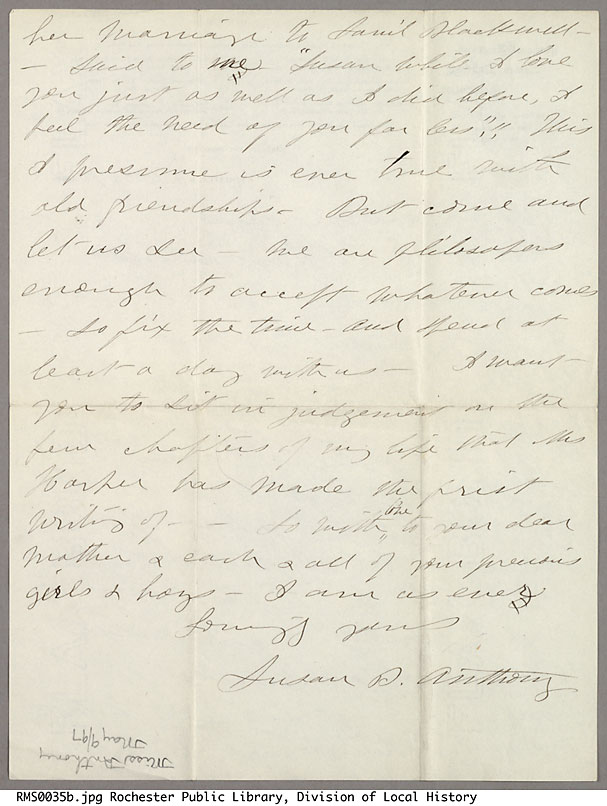 her marriage to Sam'l Blackwell -
- said to me - "Susan while I love
you just as well as I did before, I
feel the need of you far less"!! This
I presume is ever true with
old friendships - But come and
let us see - we are philosophers
enough to accept whatever comes
- So fix the time - and spend at
least a day with us - I want
you to sit in judgement on the
few chapters of my life that Mrs
Harper has made the first
writing of - - So with love to your dear
mother & each & all of your precious
girls & boys - I am as ever
Lovingly yours
Susan B. Anthony
Miss Anthony
May 9/97
RMS0035b.jpg Rochester Public Library, Division of Local History